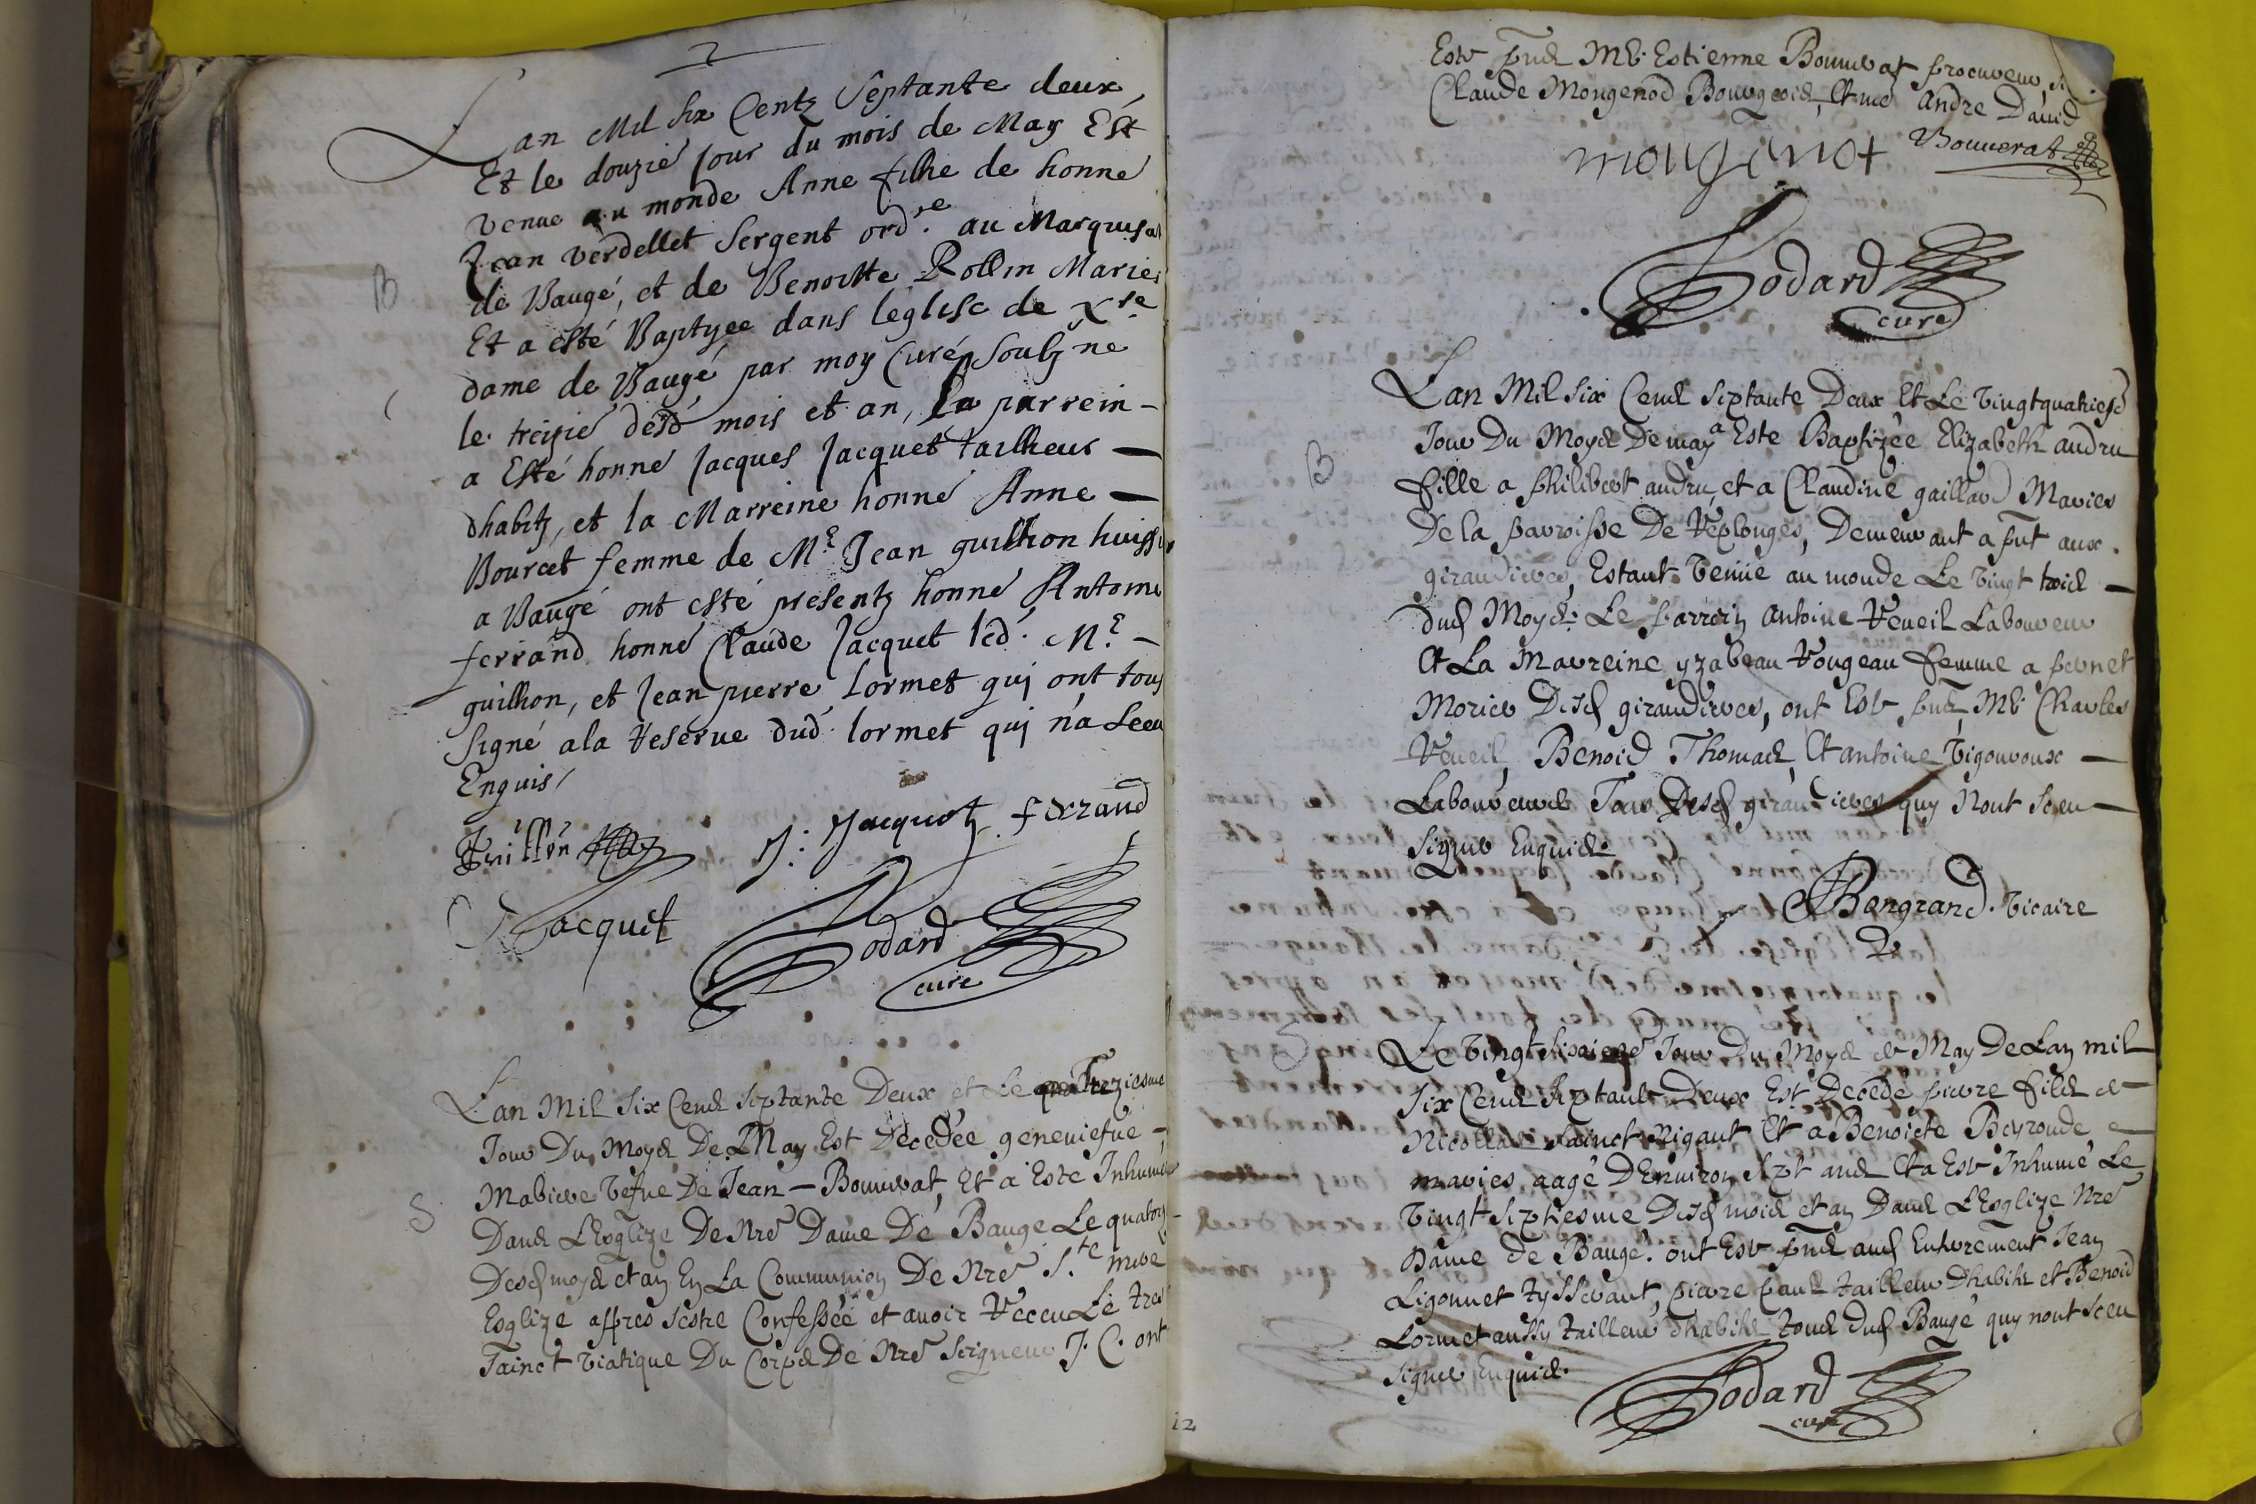 Lan Mil six Centz Septante deux
Et le douzie Jour du mois de May Est
venue au monde Anne filhe de honne
Jean verdellet Sergent ordre. au Marquisat
de Baugé, et de Benoitte Rollin Mariés
Et a esté Baptizee dans leglise de Nre
dame de Baugé par moy Curé soubz ne
le treizie desd mois et an, Le parrein -
a Esté honne Jacques Jacquet tailheur —
dhabitz, et la Marreine honne Anne —
Bourcet femme de Me Jean guilhon huissier
a Baugé ont esté presentz honne Antoine
ferrand honne Claude Jacquet led. Me -
guilhon, et Jean pierre Lormet qui ont tous
signé ala reserve dud. lormet qui n'a sceu
Enquis /
B
Guillon J: Jacquet ferrand
C Jacquet
Godard
cure
Lan Mil Six Cens septante Deux et Le Treziesme
Jour Du Moys De May Est Decedée geneuiefue -
Mabiere vefue De Jean - Bonnerat, Et a Esté Inhumée
Dans LEsglize De Nre Dame De Bauge Le quatorz-
Desd moys et an En La Communion De Nre Ste mere
Esglize appres sestre Confessée et auoir receu Le tres
sainct viatique Du Corps De Nre Seigneur J. C. ont
S
Este pns Me Estienne Bonnerat procureur, Sr
Claude Mongenod Bourgeois, Et me Andre David
mongenot Bonnerat
Godard
cure
Lan Mil six Cens septante Deux Et Le vingtquatriesme
Jour Du Moys De may a Este Baptizée Elizabeth andru
fille a philibert andru, et a Claudine gaillard Maries
De la parroisse De Replonges, Demeurant a pnt aux
giraudieres, Estant venüe au monde Le vingt trois -
dud Moys. Le parrein antoine Reveil Laboureur
Et La Marreine yzabeau Vougeau femme a pernet
Morier Desd girandieres, ont Este pns Me Charles
Reveil, Benoid Thomas, Et antoine vigouroux -
Laboureurs Tous Desd girandieres quy Nont sceu -
signer Enquis.
B
Bengrand. vicaire
Le vingt sixiesme Jour Du Moys de May De Lan mil
six Cens septante Deux Est Decedé pierre fils de -
Nicollas sainct Rigaut Et a Benoicte Beyroude -
maries, aagé DEnviron sept ans Et a Este Inhumé Le
vingt septiesme Desd mois et an Dans LEsglize Nre
Dame de Baugé. ont Este pns aud Enterrement Jean
Ligonnet tysserant, pierre paul tailleur dhabits et Benoid
Lormet aussy tailleur dhabits tous dud Baugé quy nont sceu
signer Enquis.
Godard
cure
12